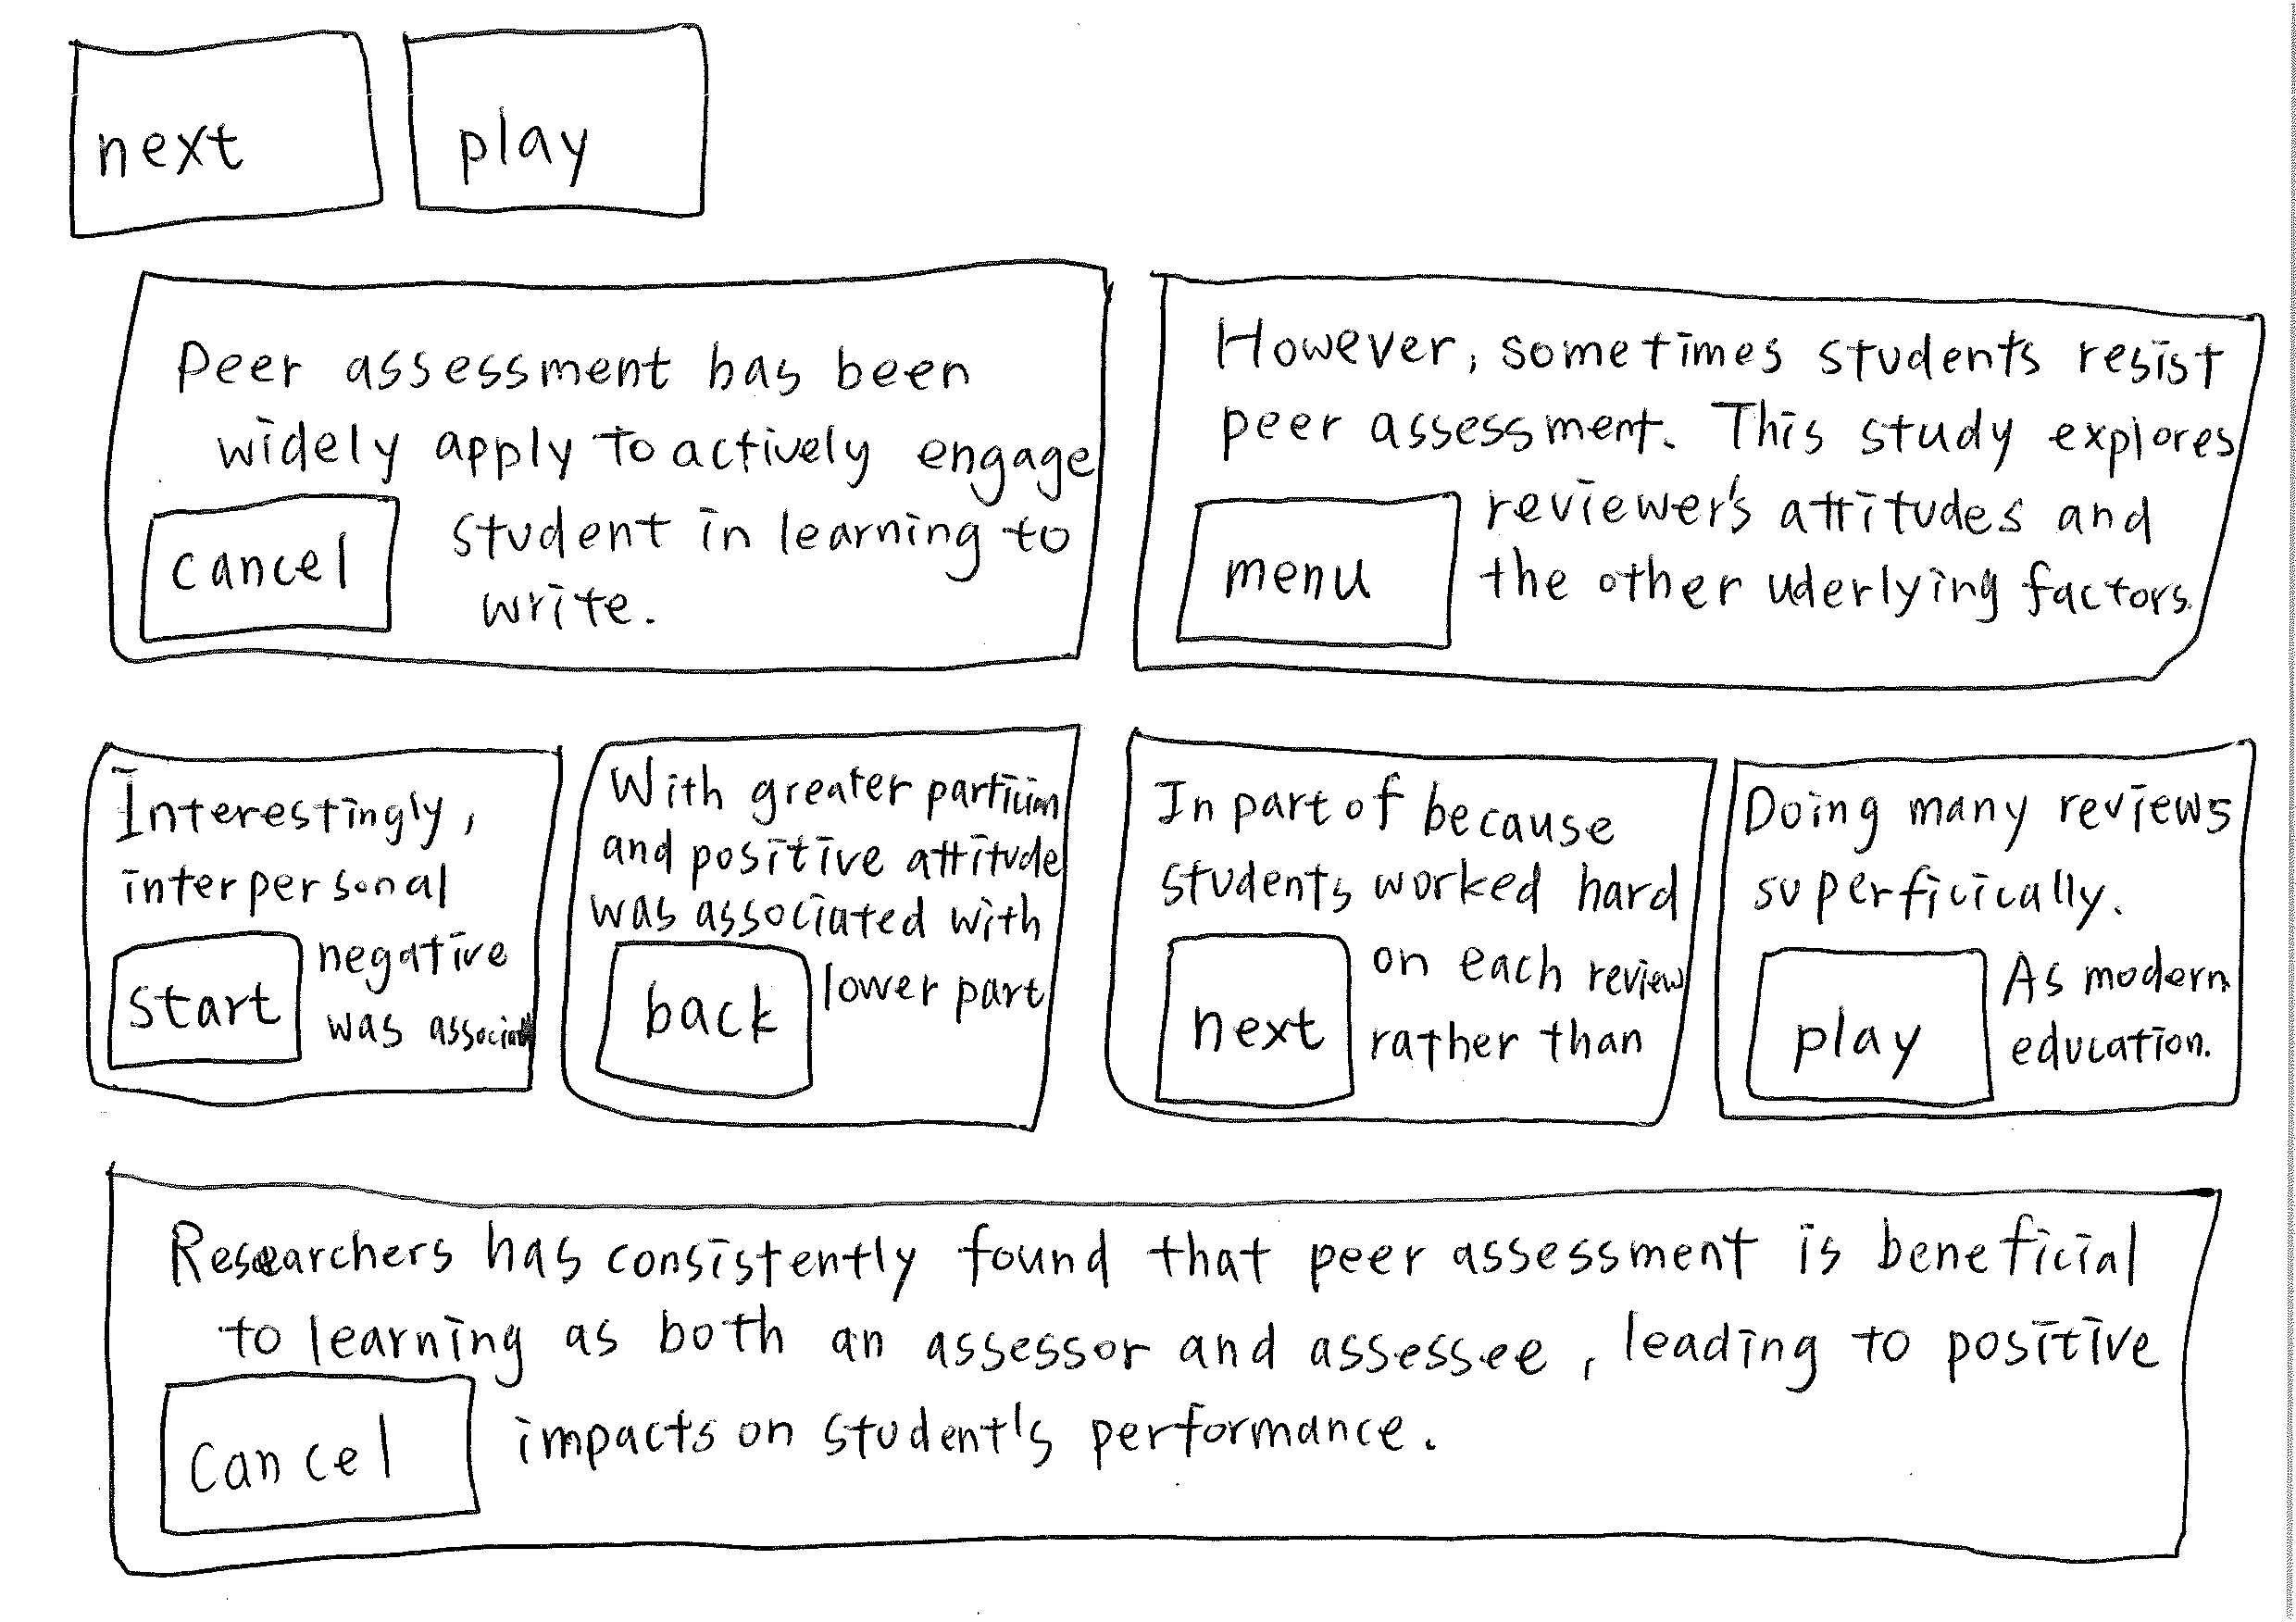 next
play
Peer assessment has been
widely apply to actively engage
student in learning to
write.
cancel
However, sometimes students resist
peer assessment. This study explores
reviewer's attitudes and
the other uderlying factors.
menu
Interestingly,
interpersonal
negative
was
start
With greater
and positive attitude
was associated with
lower part
back
In part of because
students worked hard
on each review
rather than
next
Doing many reviews
superficically.
As modern
education.
play
Researchers has consistently found that peer assessment is beneficial
to learning as both an assessor and assessee, leading to positive
impacts on student's performance.
cancel